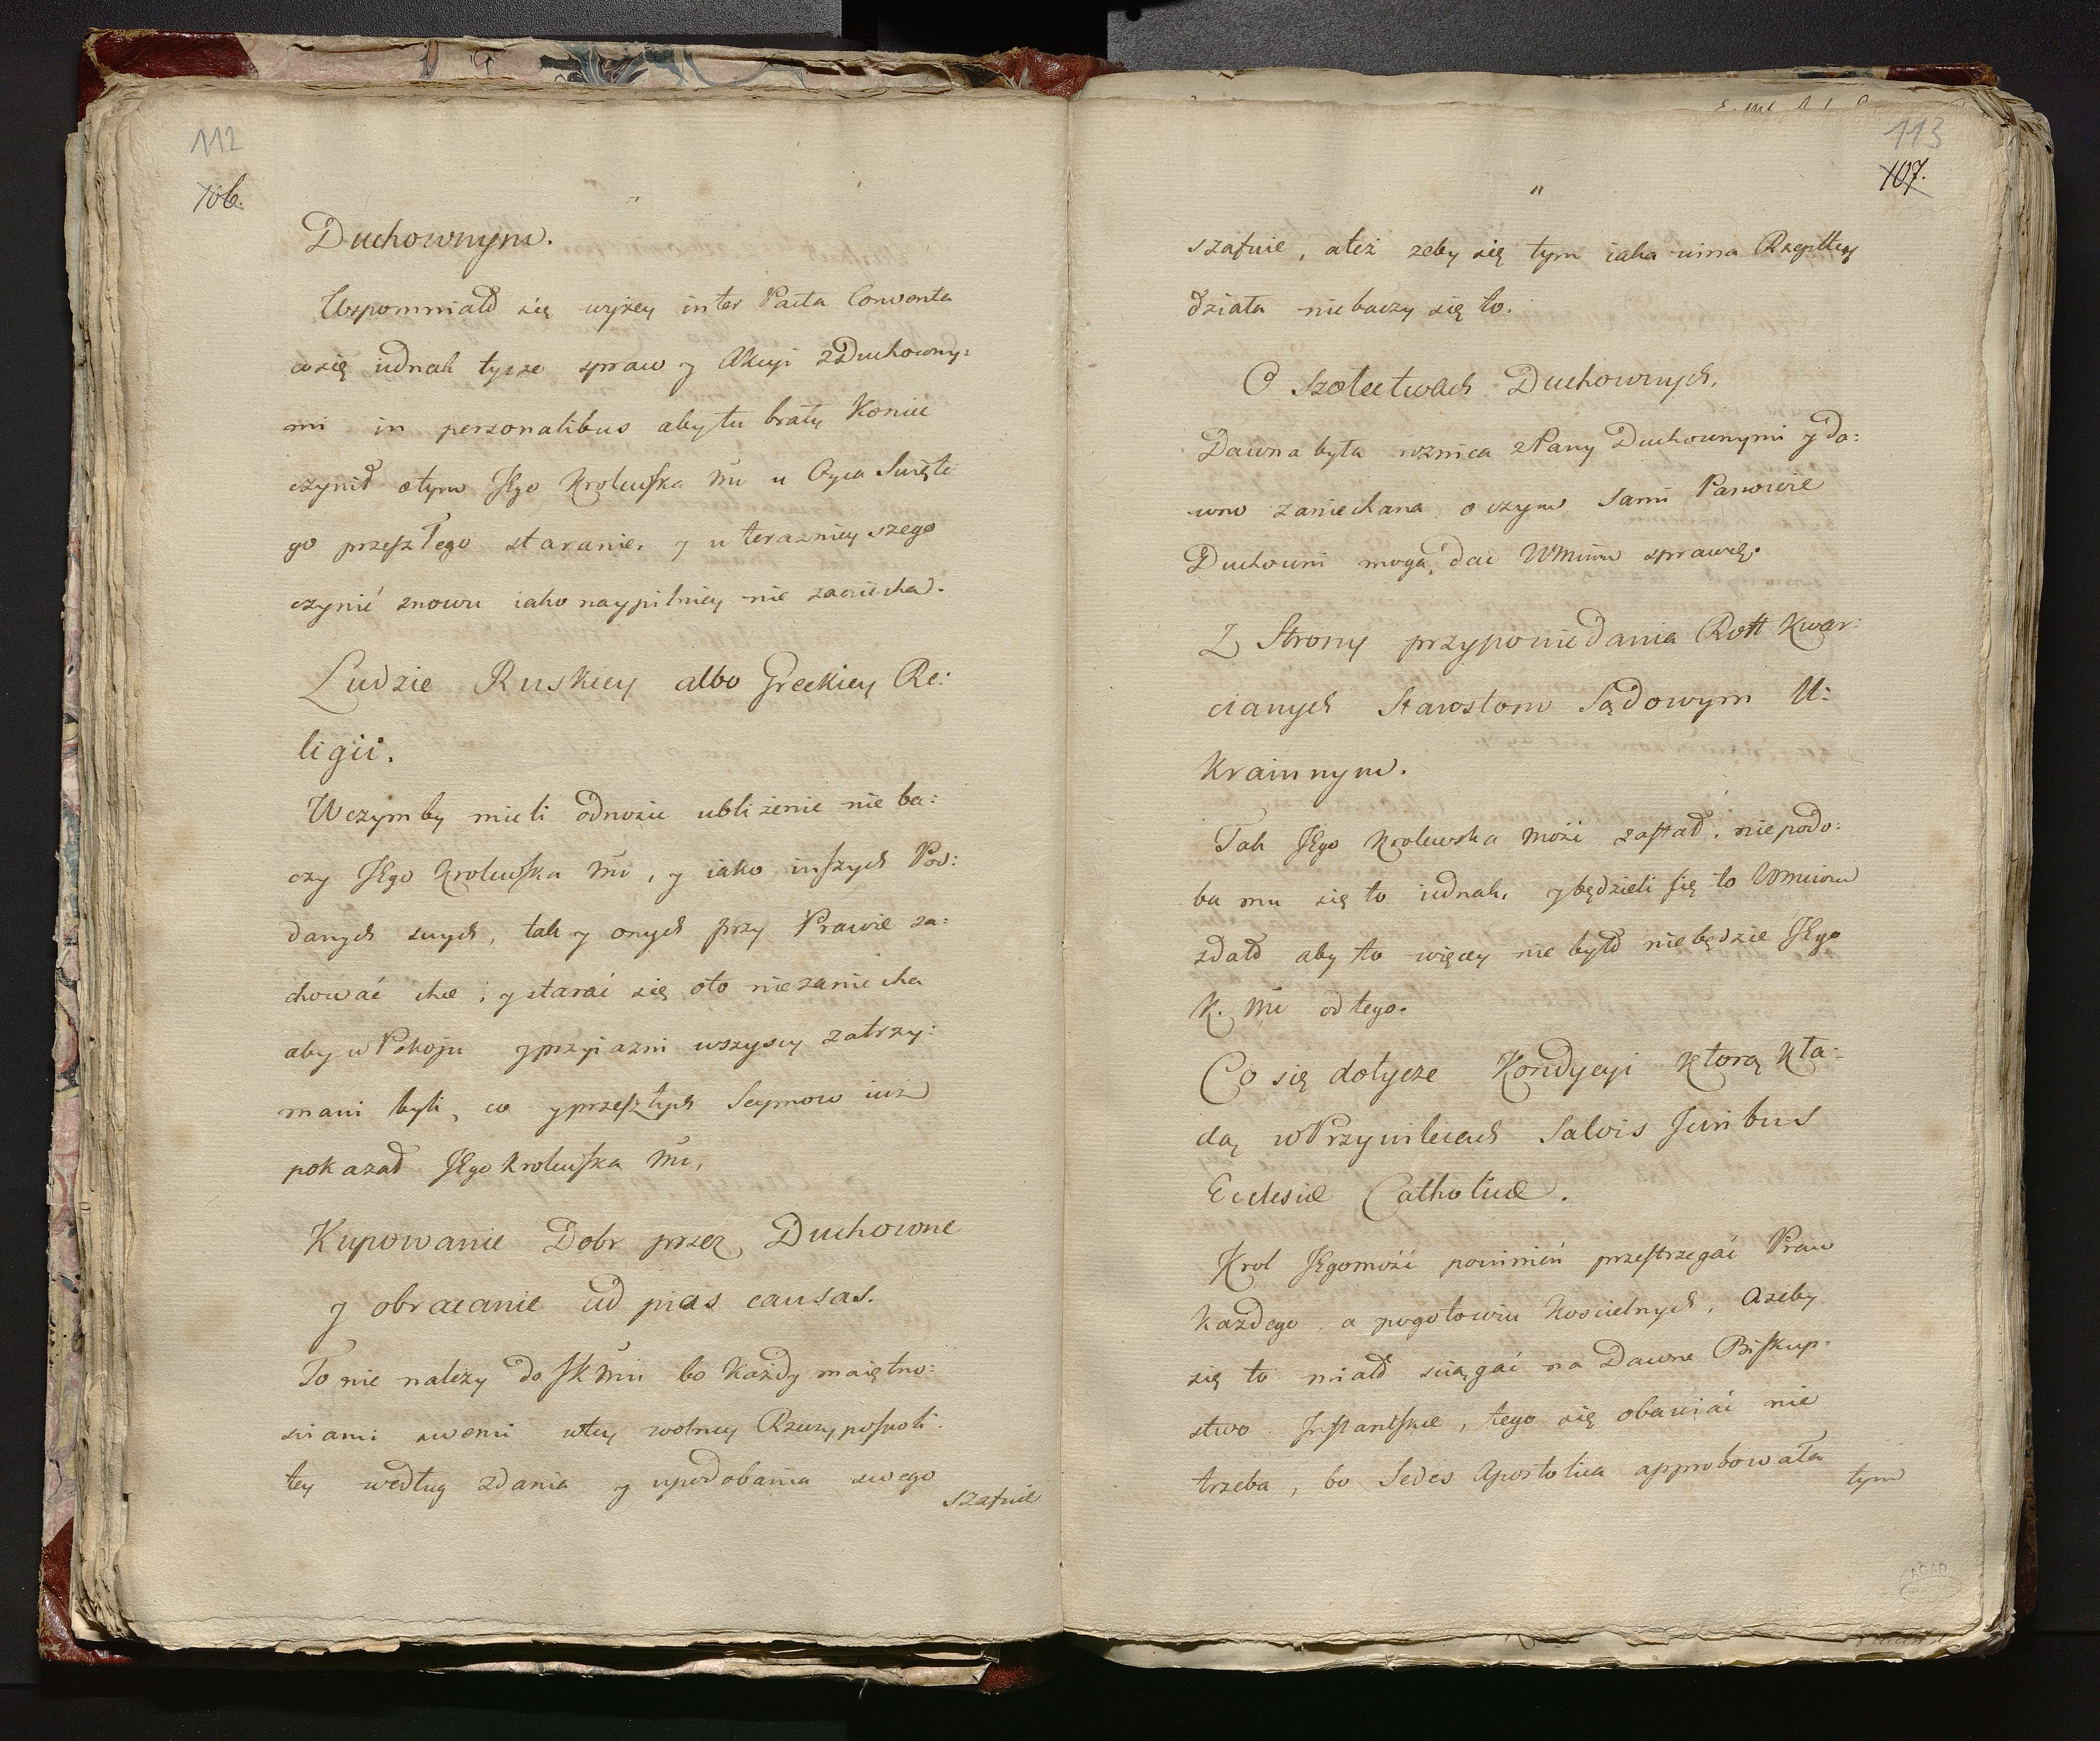 112
106.
Duchownym.
Wspomniało się wyżey inter Pacta Conventa
co się iednak tycze spraw y Akcyi z Duchowny:
mi in personalibus aby tu brały Koniec
czynił otym JEgo Krolewska Mć u Oyca Swięte
go przeszłego staranie. y u teraznieyszego
czynić znowu iako naypilniey nie zaniecha.
Ludzie Ruskiey albo Greckiey Re:
ligii.
W czymby mieli odnosic ubliżenie nie ba:
czy JEgo Krolewska Mć, y iako inszych Pod:
danych swych, tak y onych przy Prawie za:
chować chce, y starać się oto niezaniecha
aby w Pokoju y przyiazni wszyscy zatrzy:
mani byli, co y przeszłych Seymow iuż
pokazał JEgo Krolewska Mć,
Kupowanie Dobr przez Duchowne
y obracanie ad pias causas.
To nie należy do JK Mći bo Każdy maiętno:
sciami swemi wtey wolney Rzeczypospoli:
tey według zdania y upodobania swego
szafuie
113
107.
szafuie, a też zeby się tym iaka uima Rzeptey
działa nie baczy się to.
O Szolectwach Duchownych.
Dawna była roznica z Pany Duchownymi y da:
wno zaniechana o czym Sami Panowie
Duchowni mogą dac WMciom sprawę.
Z Strony przypowiedania Rott Kwar:
cianych Starostom Sądowym U:
krainnym.
Tak JEgo Krolewska Mość zastał, niepodo:
ba mu się to iednak, y będzieli się to WMciom
zdało aby to więcey nie było niebędzie JEgo
K. Mć od tego.
Co się dotycze Kondycyi Ktorą Kła:
dą w Przywileiach Salvis Juribus
Ecclesiæ Catholicæ.
Krol JEgomość powinień przestrzegać Praw
każdego, a pogotowiu Koscielnych, Ażeby
się to miało sciągać na Dawne Biskup:
stwo Inflantskie, tego się obawiać nie
trzeba, bo Sedes Apostolica approbowała
tym